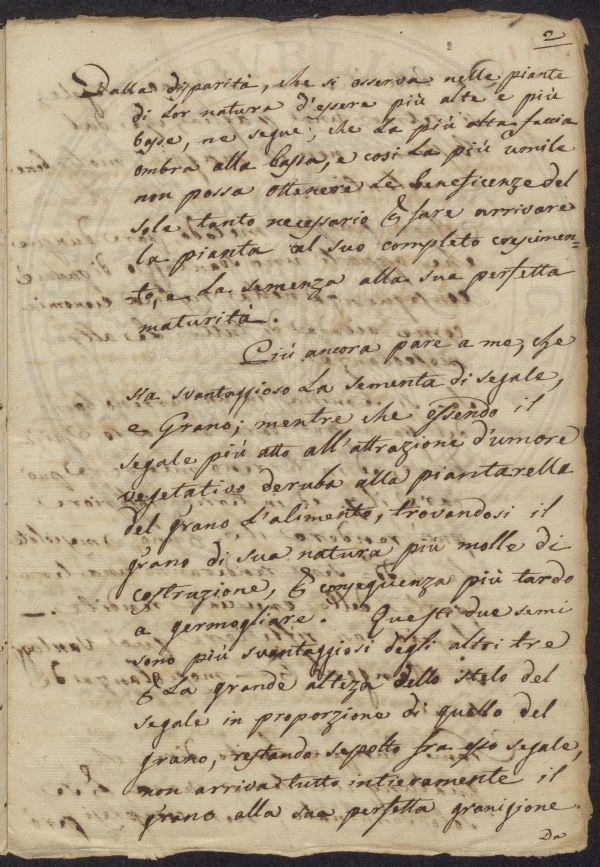 2
Dalla disparità, che si osserva nelle piante
di lor natura d'essere più alte e più
basse, ne segue, che la più alta faccia
ombra alla bassa, e così la più umile
non possa ottenere le beneficenze del
sole tanto necessario per fare arrivare
la pianta al suo completo crescimen=
to, e la semenza alla sua perfetta
maturità.
Più ancora pare a me, che
sia svantaggioso la sementa di segale,
e Grano; mentre che essendo il
segale più atto all'attrazione d'umore
vegetativo deruba alla piantarella
del grano l'alimento, trovandosi il
grano di sua natura più molle di
costruzione, per conseguenza più tardo
a germogliare. Questi due semi
sono più svantaggiosi degli altri tre
per la grande alteza dello stelo del
segale in proporzione di quello del
grano, restando sepolto fra esso segale,
non arriva tutto intieramente il
grano alla sua perfetta granigione.
Da